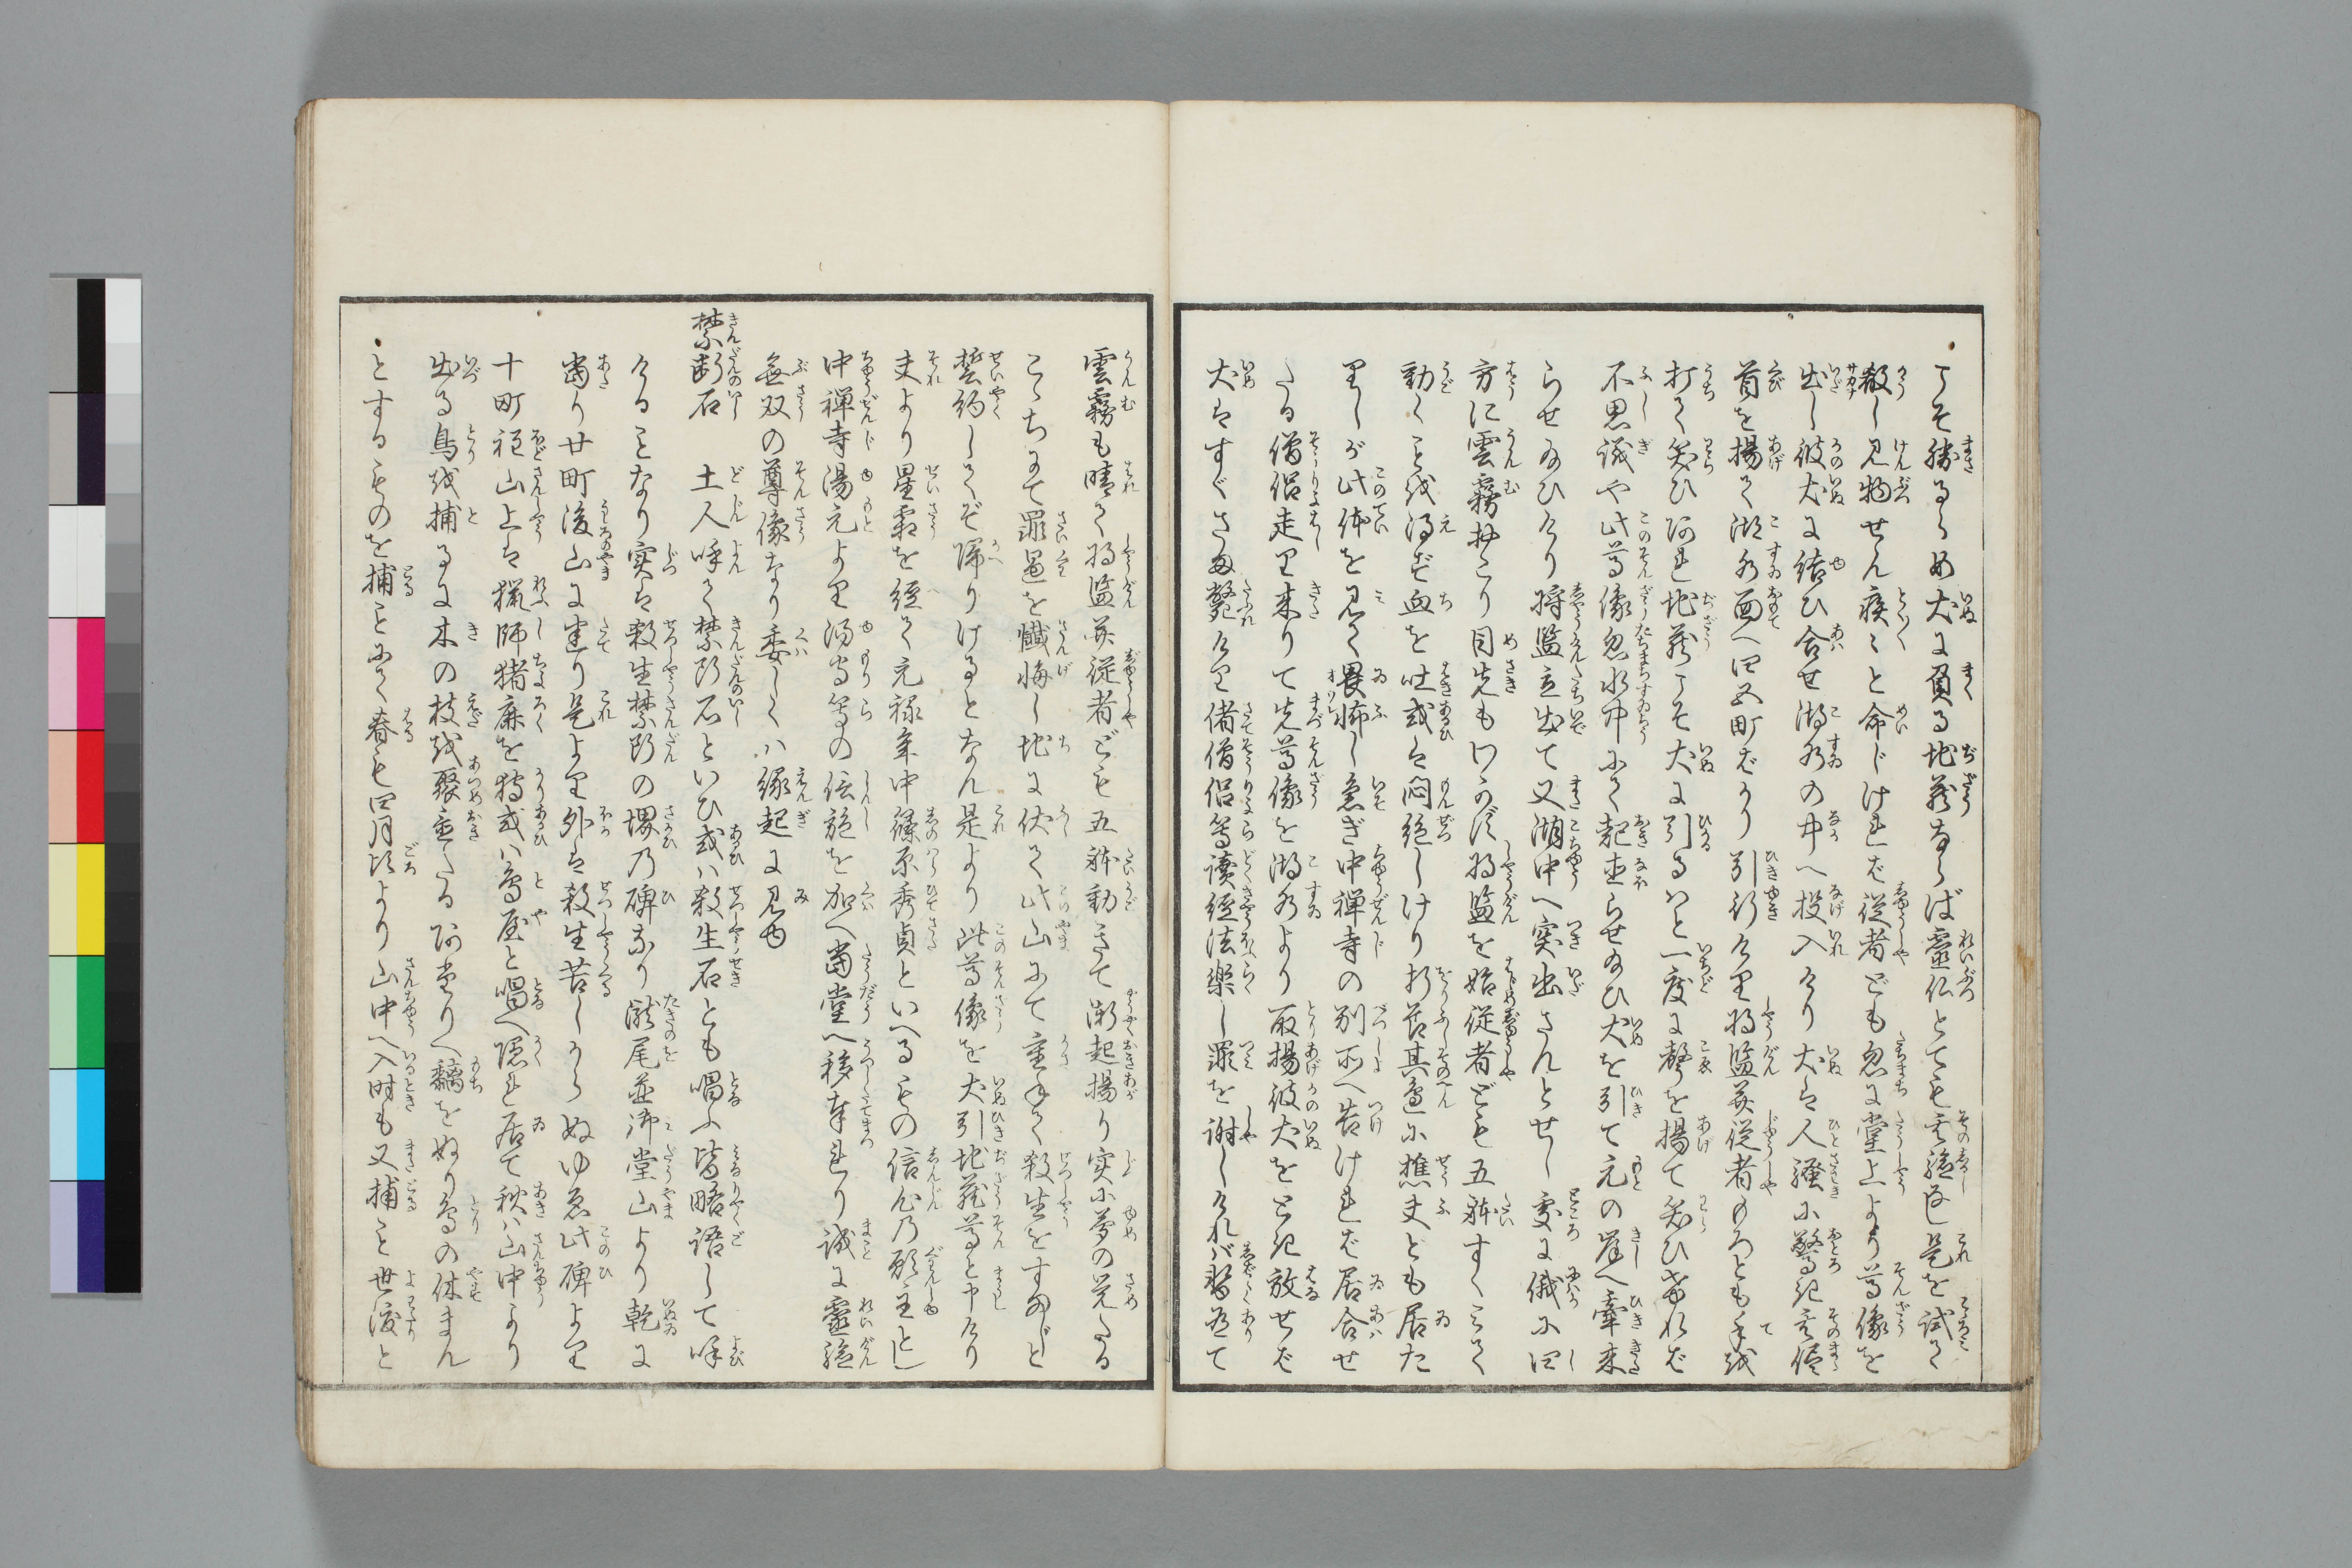 こそ勝るらめ犬に負る地蔵ならば霊仏とても其験なし是を試て
殺し見物せん疾々と命じければ従者ども忽に堂上より尊像を
出し彼犬に結ひ合せ湖水の中へ投入けり犬は人騒に驚き其侭
首を揚て湖水面へ四五町ばかり引行けり将監并従者のものとも手を
打て笑ひ此地蔵こそ犬に引るゝと一度に声を揚て笑ひければ
不思議や此尊像忽水中にて起直らせ給ひ犬を引て元の岸へ牽来
らせ給ひけり将監立出て又湖中へ突出さんとせし処に俄に四
方に雲霧おこり目先も分かず将監を始従者ども五体すくみて
動くことを得ず血を吐或は悶絶しけり折節其辺に樵夫とも居た
りしが此体を見て畏怖し急ぎ中禅寺の別所へ告ければ居合せ
たる僧侶走り来りて先尊像を湖水より取揚彼犬をとき放せば
犬はすぐさま斃けり偖僧侶等読経法楽し罪を謝しければ暫有て
雲霧も晴て将監并従者ども五体動きて漸起揚り実に夢の覚たる
こゝちにて罪過を懺悔し地に伏て此山にて重ねて殺生をすまじと
誓約してぞ帰りけるとなん是より此尊像を犬引地蔵尊と申けり
夫より星霜を経て元禄年中篠原秀貞といへるもの信心の願主とし
中禅寺湯元より湯守等の信施を加へ当堂へ移し奉れり誠に霊験
無双の尊像なり委しくハ縁起に見ゆ
禁断石 土人呼て禁断石といひ或ハ殺生石とも唱ふ皆略語して呼
けることなり実は殺生禁断の境の碑なり瀧尾並御堂山より乾に
当り廿町後山に建り是より外は殺生苦しからぬゆゑ此碑より
十町程山上は猟師猪鹿を狩或ハ鳥屋と唱へ隠れ居て秋ハ山中より
出る鳥を捕るに木の枝を聚置たる所堂りへ黐をぬり鳥の休まん
とするものを捕ことにて春も四月頃より山中へ入時も又捕こと世渡と